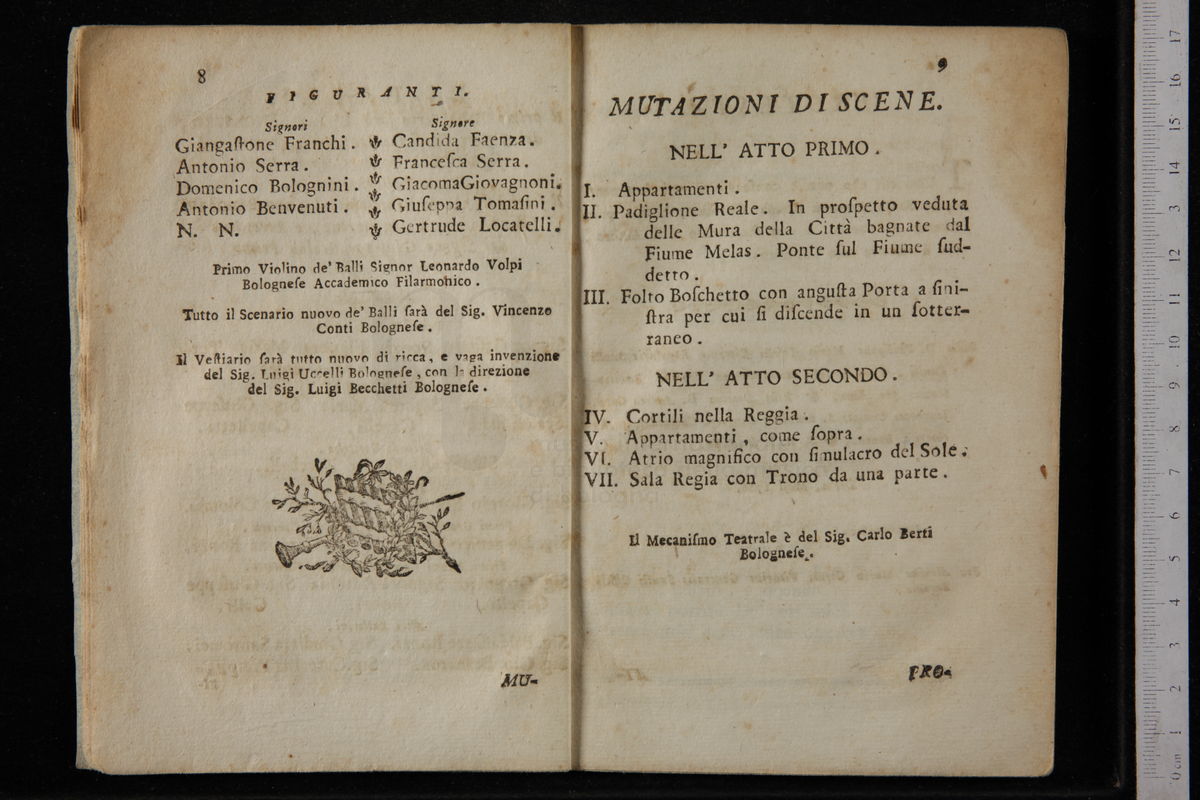 8
FIGURANTI.
Signori Signore
Giangaſtone Franchi. Candida Faenza.
Antonio Serra. Franceſca Serra.
Domenico Bolognini. GiacomaGiovagnoni.
Antonio Benvenuti. Giuſeppa Tomaſini.
N. N. Gertrude Locatelli.
Primo Violino de' Balli Signor Leonardo Volpi
Bologneſe Accademico Filarmonico.
Tutto il Scenario nuovo de' Balli ſarà del Sig. Vincenzo
Conti Bologneſe.
Il Veſtiario ſarà tutto nuovo di ricca, e vaga invenzione
del Sig. Luigi Uccelli Bologneſe, con la direzione
del Sig. Luigi Becchetti Bologneſe.
MU-
9
MUTAZIONI DI SCENE.
NELL' ATTO PRIMO.
I. Appartamenti.
II. Padiglione Reale. In proſpetto veduta
delle Mura della Città bagnate dal
Fiume Melas. Ponte ſul Fiume ſud-
detto.
III. Folto Boſchetto con anguſta Porta a ſini-
ſtra per cui ſi diſcende in un ſotter-
raneo.
NELL' ATTO SECONDO.
IV. Cortili nella Reggia.
V. Appartamenti, come ſopra.
VI. Atrio magnifico con ſimulacro del Sole.
VII. Sala Regia con Trono da una parte.
Il Mecaniſmo Teatrale è del Sig. Carlo Berti
Bologneſe.
PRO-
0 cm 1 2 3 4 5 6 7 8 9 10 11 12 13 14 15 16 17